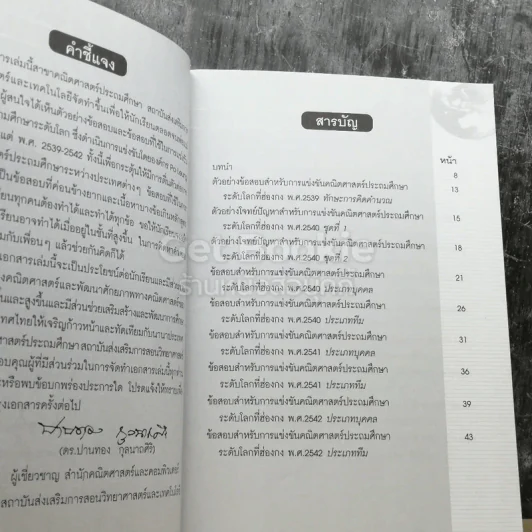 คำชี้แจง
สารเล่มนี้สาขาคณิตศาสตร์ประถมศึกษา สถาบันส่งเสริม
ตร์และเทคโนโลยีจัดทำขึ้นเพื่อให้นักเรียนตลอดจน
ผู้สนใจได้เห็นตัวอย่างข้อสอบและข้อสอบที่ใช้ในการแข่งขัน
ถมศึกษาระดับโลก ซึ่งดำเนินการแข่งขันโดยฮ่องกง
แต่ พ.ศ. 2539-2542 ทั้งนี้เพื่อกระตุ้นให้มีการตื่นตัว
ตร์ประถมศึกษาระหว่างประเทศต่างๆ ข้อสอบที่ใช้
เป็นข้อสอบที่ค่อนข้างยากและเนื้อหาบางข้อเกินหลักสูตร
ยนทุกคนต้องทำได้และทำได้ทุกข้อ
เรียนอาจทำได้เมื่ออยู่ในชั้นที่สูงขึ้น ในการคิด
มกับเพื่อนๆ แล้วช่วยกันคิดก็ได้
เอกสารเล่มนี้จะเป็นประโยชน์ต่อนักเรียนและ
งคณิตศาสตร์และพัฒนาศักยภาพทางคณิตศาสตร์
ขึ้นและสูงขึ้นและมีส่วนช่วยเสริมสร้างและพัฒนาการศึกษา
เทศไทยให้เจริญก้าวหน้าและทัดเทียมกับนานาประเทศ
ตร์ประถมศึกษา สถาบันส่งเสริมการสอนวิทยาศาสตร์
อบคุณผู้ที่มีส่วนร่วมในการจัดทำเอกสารเล่มนี้
หรือพบข้อบกพร่องประการใด โปรดแจ้งให้ทราบ
งเอกสารครั้งต่อไป
(ดร.ปานทอง กุลนาถศิริ)
ผู้เชี่ยวชาญ สำนักคณิตศาสตร์และคอมพิวเตอร์
สถาบันส่งเสริมการสอนวิทยาศาสตร์และเทคโนโลยี
สารบัญ
หน้า
บทนำ 8
ตัวอย่างข้อสอบสำหรับการแข่งขันคณิตศาสตร์ประถมศึกษา 13
ระดับโลกที่ฮ่องกง พ.ศ.2539 ทักษะการคิดคำนวณ
ตัวอย่างโจทย์ปัญหาสำหรับการแข่งขันคณิตศาสตร์ประถมศึกษา 15
ระดับโลกที่ฮ่องกง พ.ศ.2540 ชุดที่ 1
ตัวอย่างโจทย์ปัญหาสำหรับการแข่งขันคณิตศาสตร์ประถมศึกษา 18
ระดับโลกที่ฮ่องกง พ.ศ.2540 ชุดที่ 2
ข้อสอบสำหรับการแข่งขันคณิตศาสตร์ประถมศึกษา 21
ระดับโลกที่ฮ่องกง พ.ศ.2540 ประเภทบุคคล
ข้อสอบสำหรับการแข่งขันคณิตศาสตร์ประถมศึกษา 26
ระดับโลกที่ฮ่องกง พ.ศ.2540 ประเภททีม
ข้อสอบสำหรับการแข่งขันคณิตศาสตร์ประถมศึกษา 31
ระดับโลกที่ฮ่องกง พ.ศ.2541 ประเภทบุคคล
ข้อสอบสำหรับการแข่งขันคณิตศาสตร์ประถมศึกษา 36
ระดับโลกที่ฮ่องกง พ.ศ.2541 ประเภททีม
ข้อสอบสำหรับการแข่งขันคณิตศาสตร์ประถมศึกษา 39
ระดับโลกที่ฮ่องกง พ.ศ.2542 ประเภทบุคคล
ข้อสอบสำหรับการแข่งขันคณิตศาสตร์ประถมศึกษา 43
ระดับโลกที่ฮ่องกง พ.ศ.2542 ประเภททีม